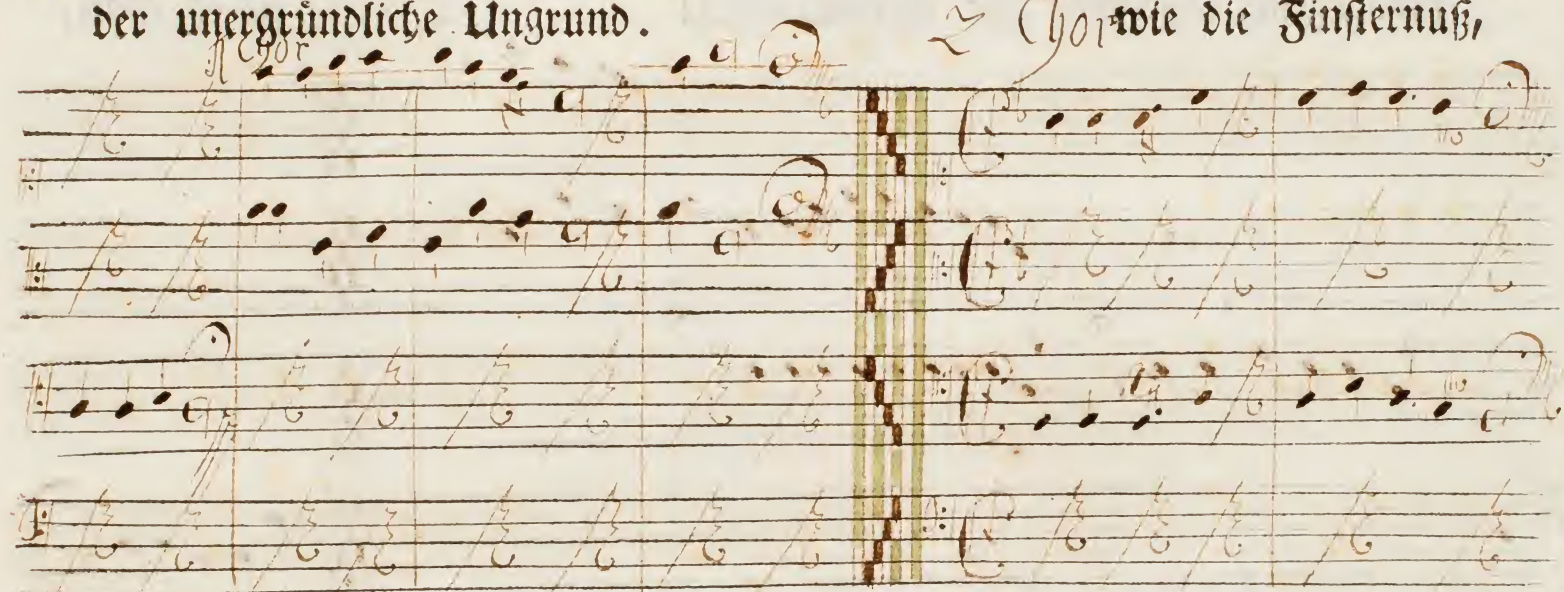 der unergründliche Ungrund.
Chor
2 Chor wie die Finsternuß,